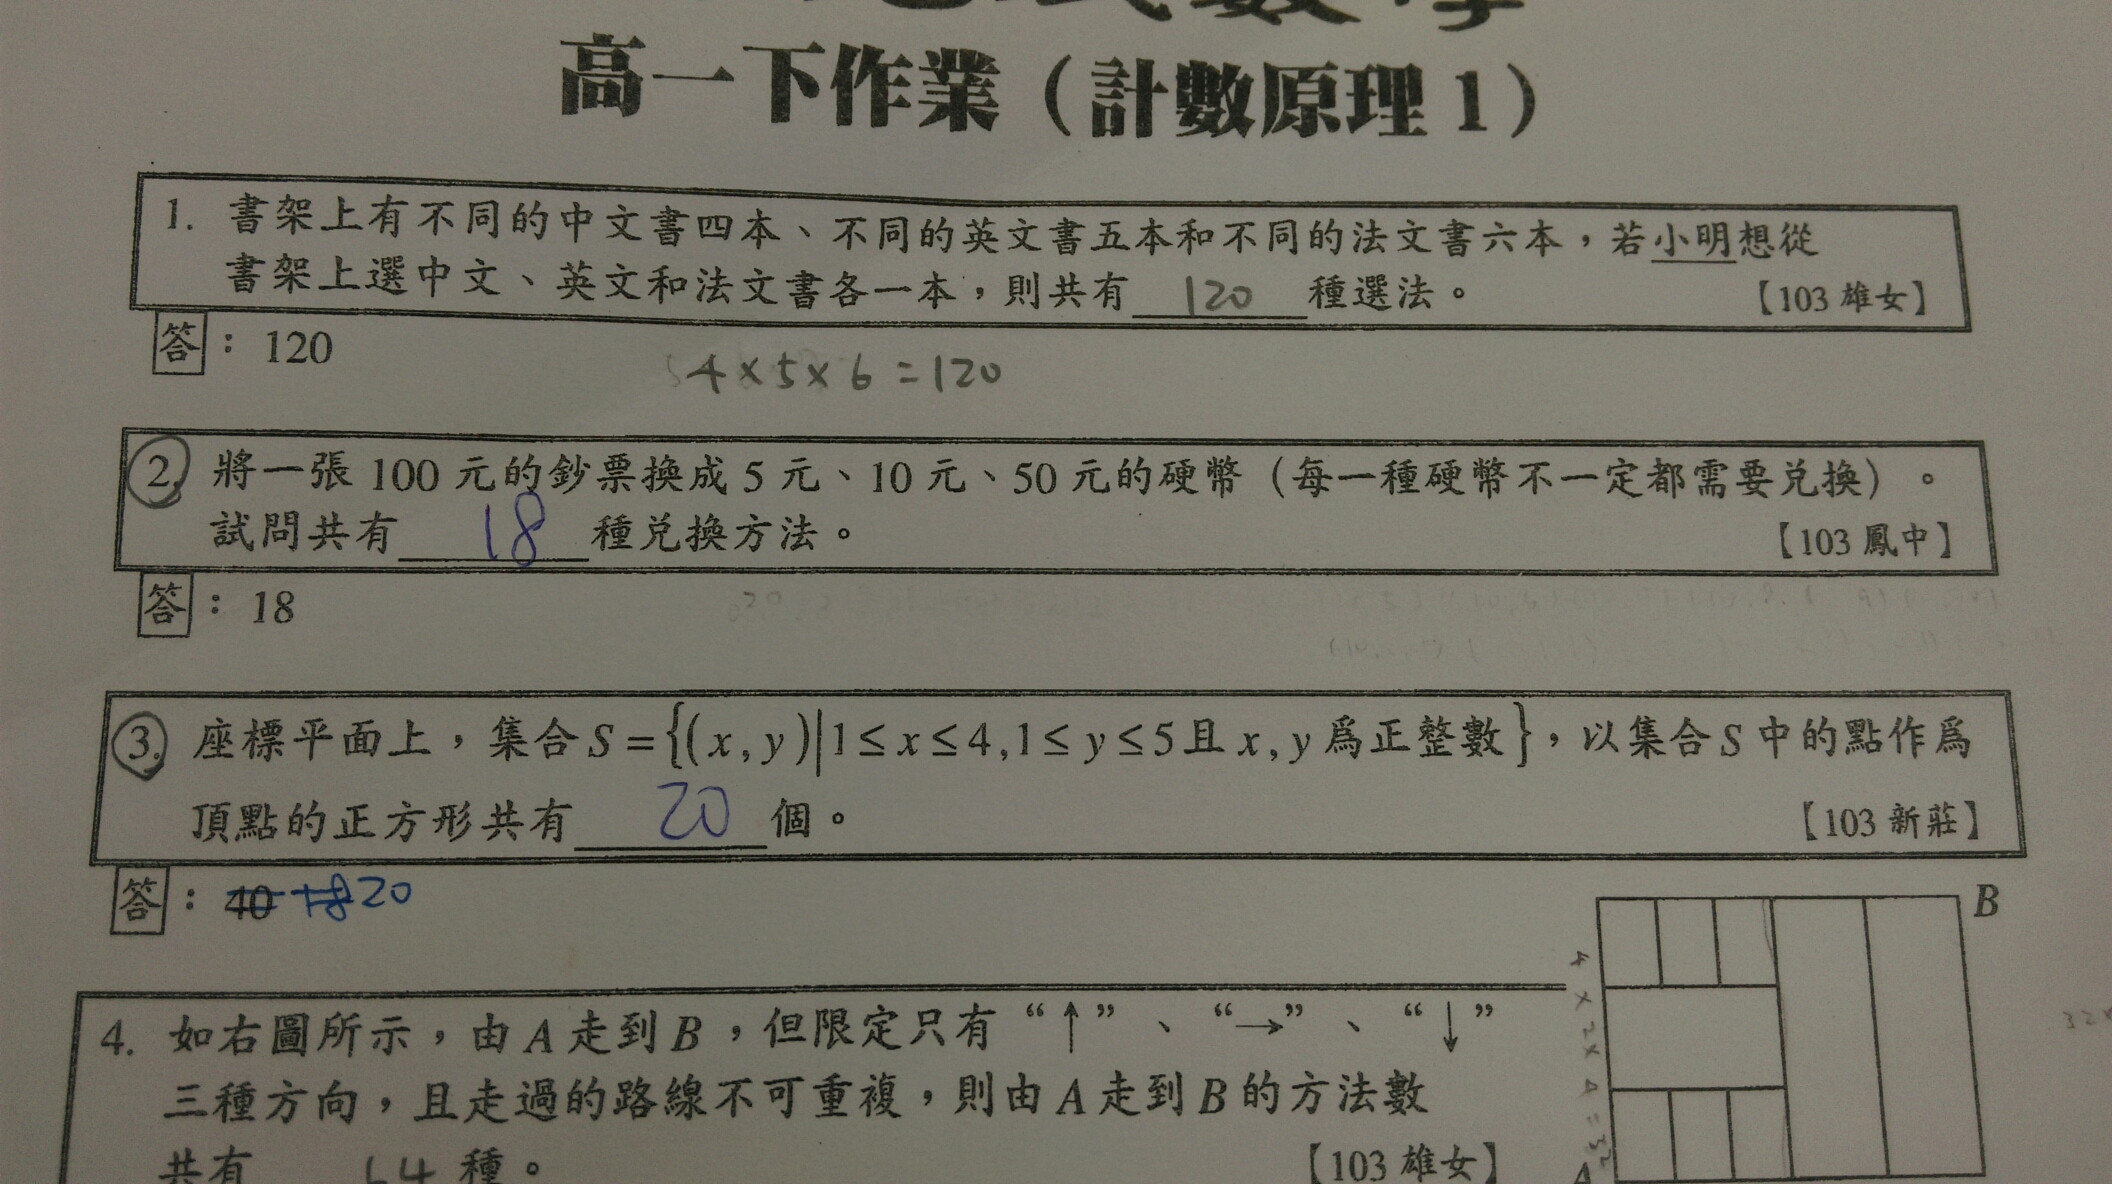 高一下作業（計數原理1）
1. 書架上有不同的中文書四本、不同的英文書五本和不同的法文書六本，若小明想從
書架上選中文、英文和法文書各一本，則共有 120 種選法。 【103 雄女】
答： 120
4×5×6=120
2. 將一張 100 元的鈔票換成 5 元、10 元、50 元的硬幣（每一種硬幣不一定都需要兌換）。
試問共有 18 種兌換方法。 【103 鳳中】
答： 18
3. 座標平面上，集合 S={(x,y)|1≤x≤4,1≤y≤5且x,y為正整數}，以集合 S 中的點作為
頂點的正方形共有 20 個。 【103 新莊】
答： 40 18 20
B
4×2×4=32
4. 如右圖所示，由 A 走到 B，但限定只有“↑”、“→”、“↓”
三種方向，且走過的路線不可重複，則由 A 走到 B 的方法數
共有 64 種。 【103 雄女】
A